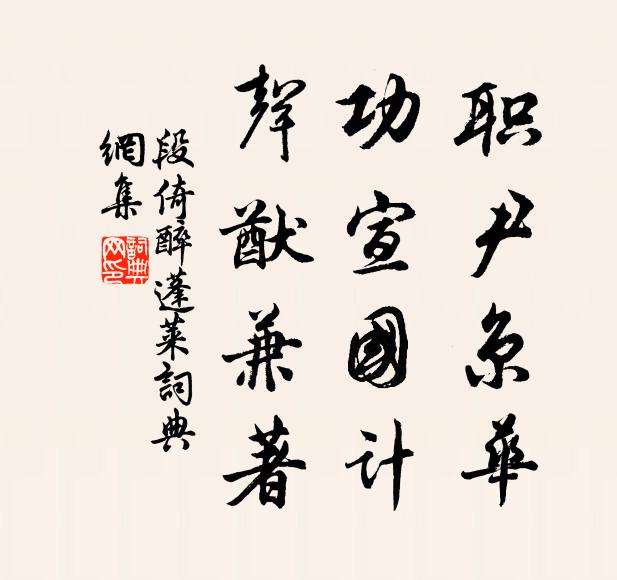 职尹京華
功宣國计
聲猷兼著
段倚醉蓬莱詞典
網集
詞典
网印